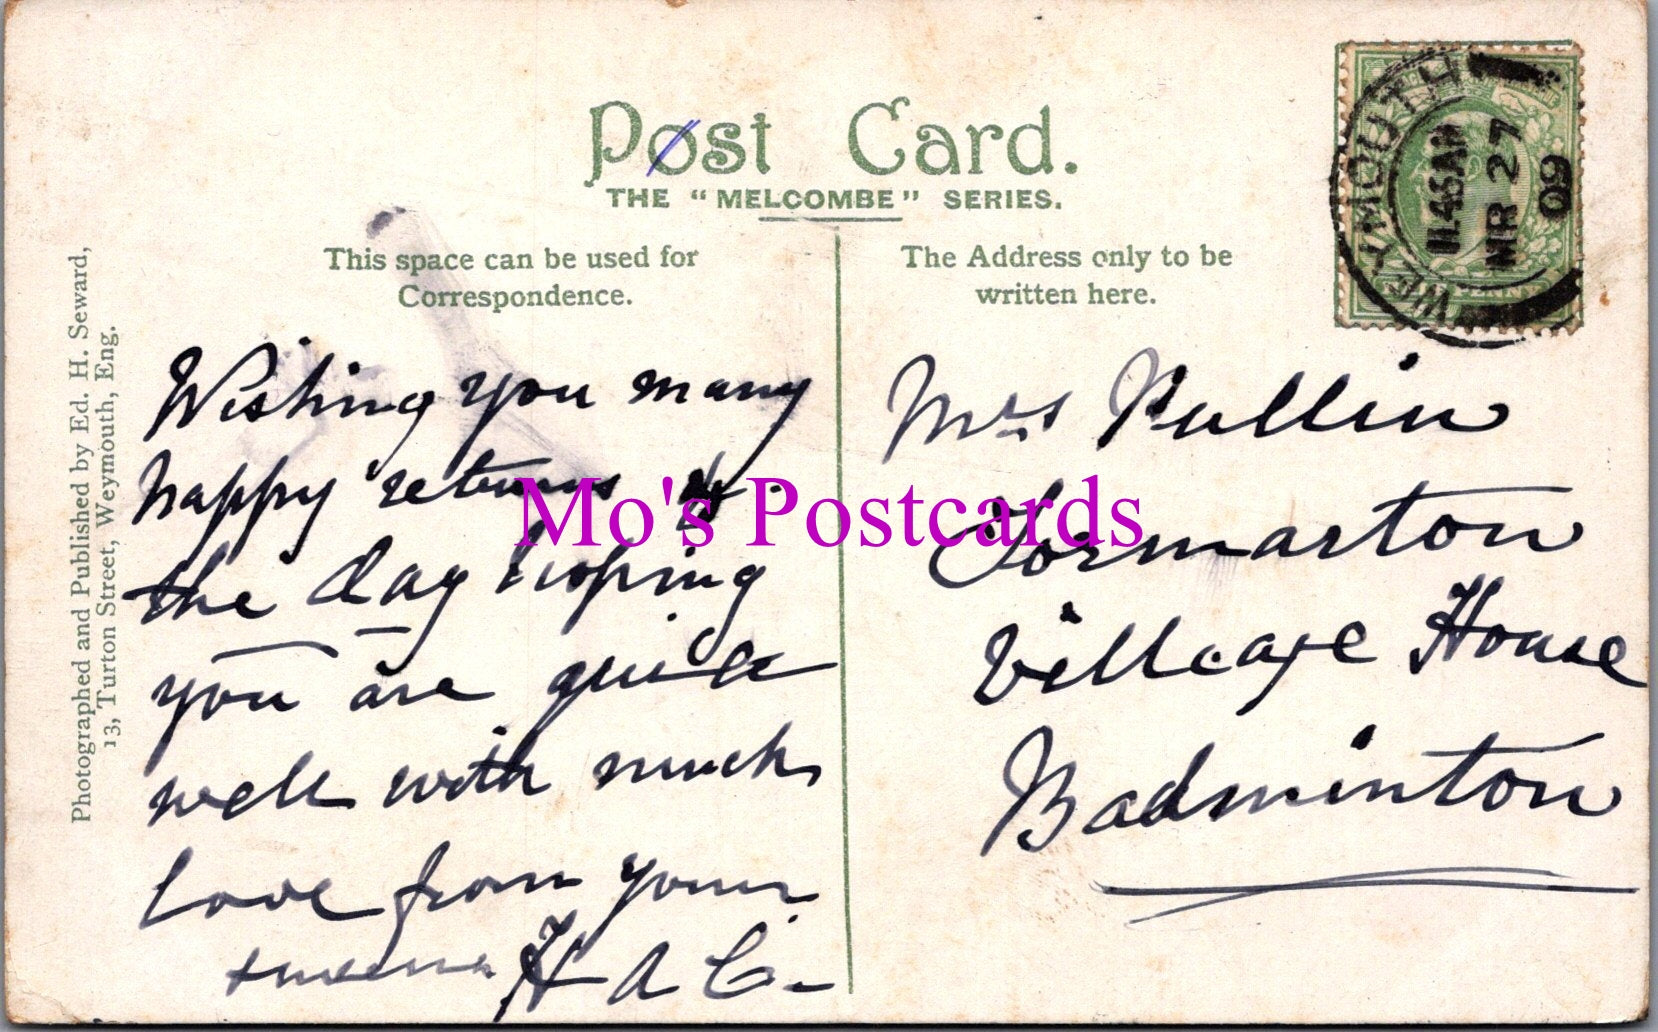 Post Card.
THE "MELCOMBE" SERIES.
This space can be used for
Correspondence.
The Address only to be
written here.
Photographed and Published by Ed. H. Seward,
13, Turton Street, Weymouth, Eng.
WEYMOUTH
11.45AM
MR 27
09
Wishing you many
happy returns of
the day hoping
you are quite
well with much
love from yours
H A C.
Mrs Pullin
Tormarton
Village House
Badminton
Mo's Postcards